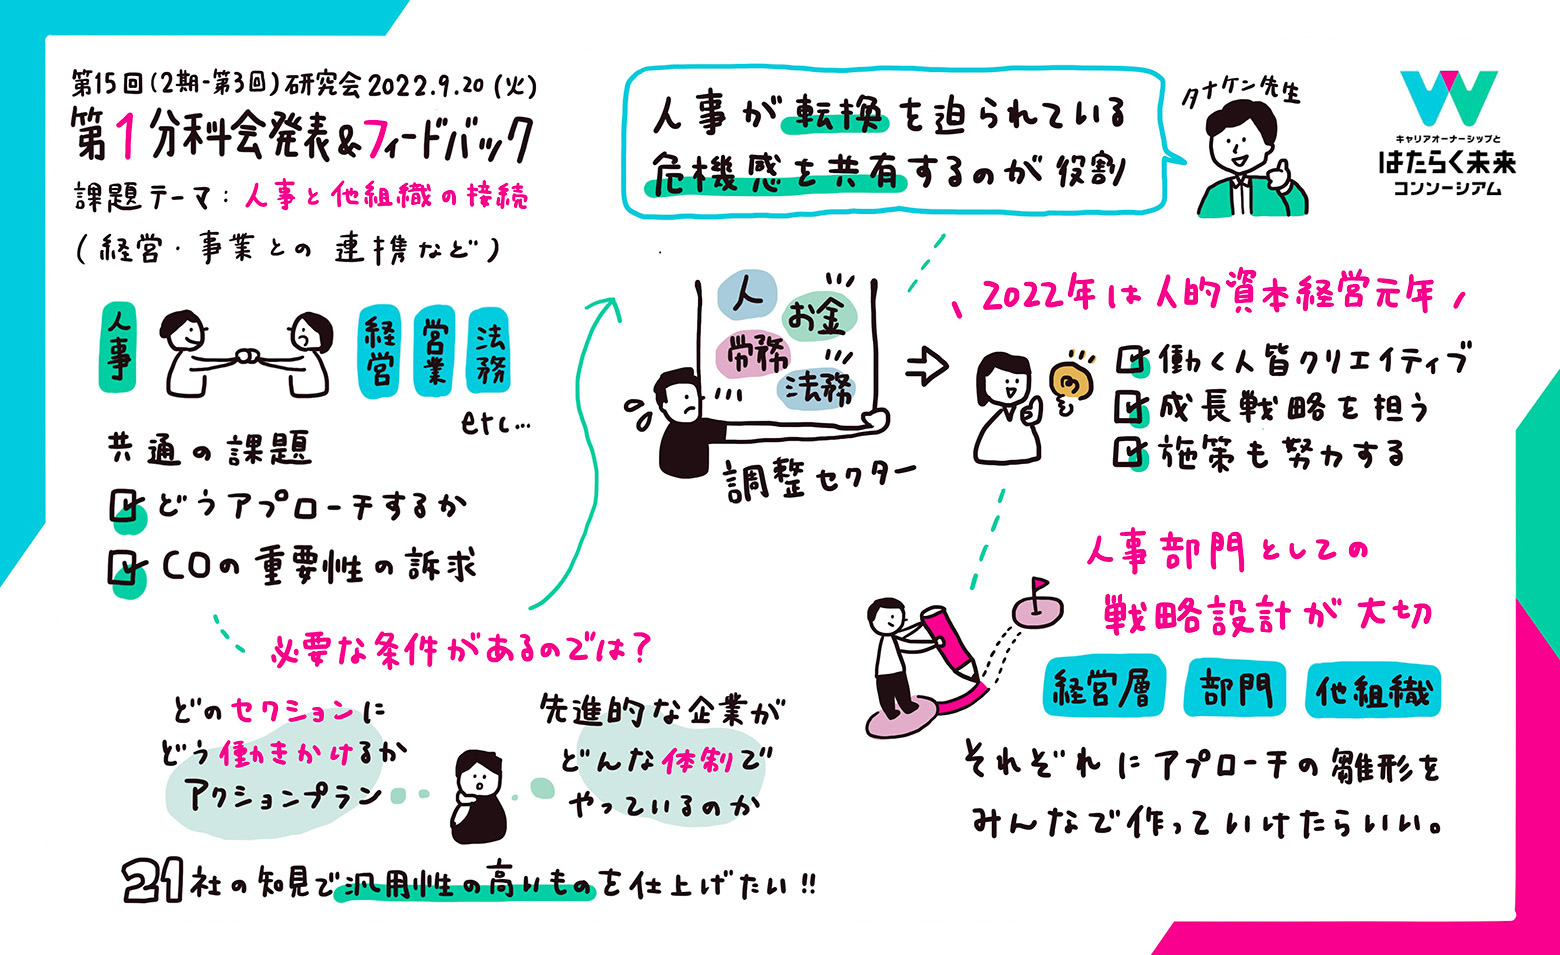 第15回(2期-第3回)研究会2022.9.20(火)
第1分科会発表&フィードバック
課題テーマ:人事と他組織の接続
(経営・事業との連携など)
人事
経営
営業
法務
etc...
共通の課題
どうアプローチするか
COの重要性の訴求
必要な条件があるのでは?
どのセクションに
どう働きかけるか
アクションプラン
先進的な企業が
どんな体制で
やっているのか
21社の知見で汎用性の高いものを仕上げたい!!
人事が転換を迫られている
危機感を共有するのが役割
タナケン先生
キャリアオーナーシップと
はたらく未来
コンソーシアム
人
お金
労務
法務
調整セクター
2022年は人的資本経営元年
働く人皆クリエイティブ
成長戦略を担う
施策も努力する
人事部門としての
戦略設計が大切
経営層
部門
他組織
それぞれにアプローチの雛形を
みんなで作っていけたらいい。